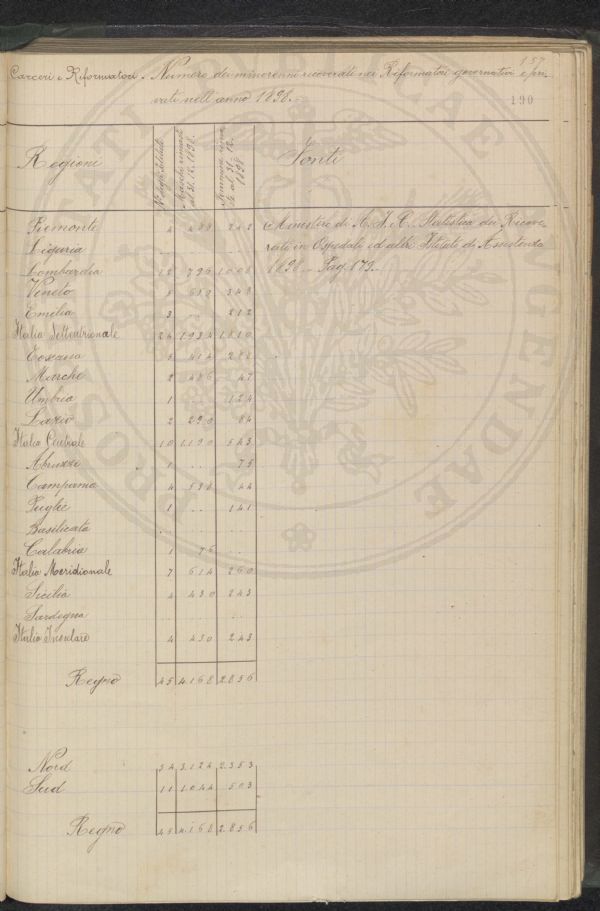 157
Carceri e Riformatori - Numero dei minorenni ricoverati nei Riformatori governativi e pri-
vati nell'anno 1898.-
190
Regioni N° degli istituti Maschi rimasti al 31.12.1898. Femmine rimaste al 31.12.1898 Fonti
Piemonte 4 489 242 Ministero di A. I. e C. Statistica dei Ricove-
Liguria .. .. .. rati in Ospedali ed altri Istituti di Assistenza
Lombardia 12 796 1008 1898.- Pag. 179.-
Veneto 5 649 348
Emilia 3 .. 212
Italia Settentrionale 24 1934 1810
Toscana 5 414 288
Marche 2 486 47
Umbria 1 .. 124
Lazio 2 290 84
Italia Centrale 10 1190 543
Abruzzi 1 .. 75
Campania 4 538 44
Puglie 1 .. 141
Basilicata .. .. ..
Calabria 1 76 ..
Italia Meridionale 7 614 260
Sicilia 4 430 243
Sardegna .. .. ..
Italia Insulare 4 430 243
Regno 45 4168 2856
Nord 34 3124 2353
Sud 11 1044 503
Regno 45 4168 2856
PUBLICAE